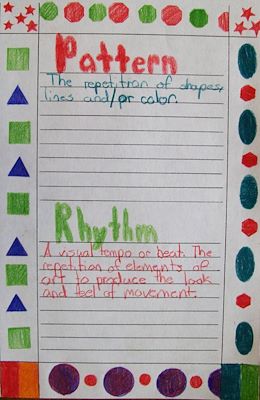 Pattern
The repetition of shapes,
lines and/or color.
Rhythm
A visual tempo or beat. The
repetition of elements of
art to produce the look
and feel of movement.